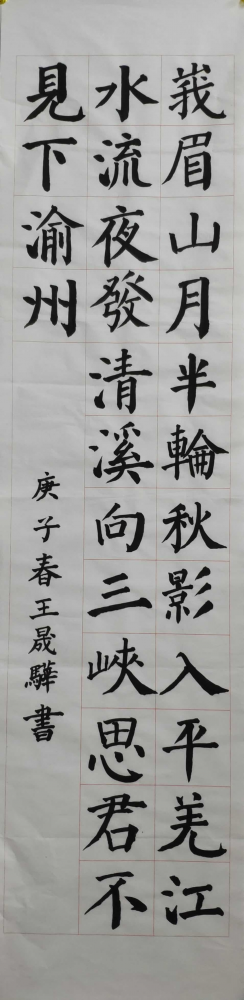 峩眉山月半輪秋影入平羌江
水流夜發清溪向三峽思君不
見下渝州
庚子春王晟驊書